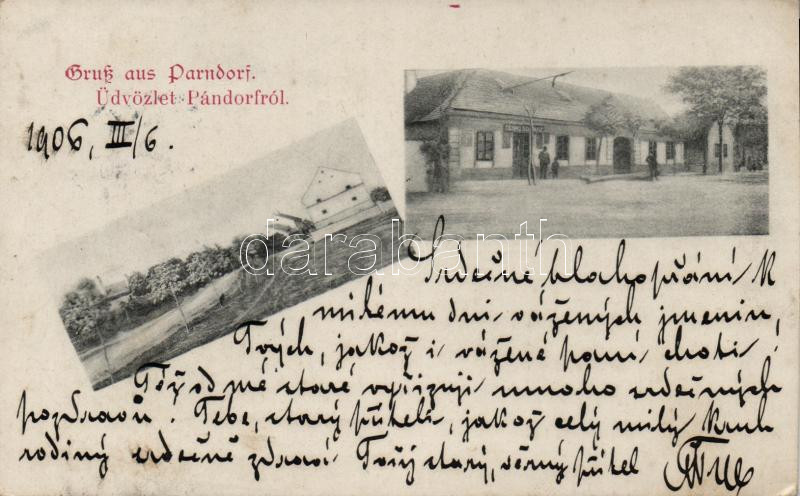 Gruß aus Parndorf.
Üdvözlet Pándorfról.
1906, III/6.
darabanth
Srdečné blahopřání k
milému dni vážených jmenin,
Tvých, jakož i vážené paní choti.
Též od mé staré vyřizuji mnoho srdečných
pozdravů. Tebe, starý příteli, jakož celý milý kruh
rodiný srdečně zdraví Tvůj starý, věrný přítel